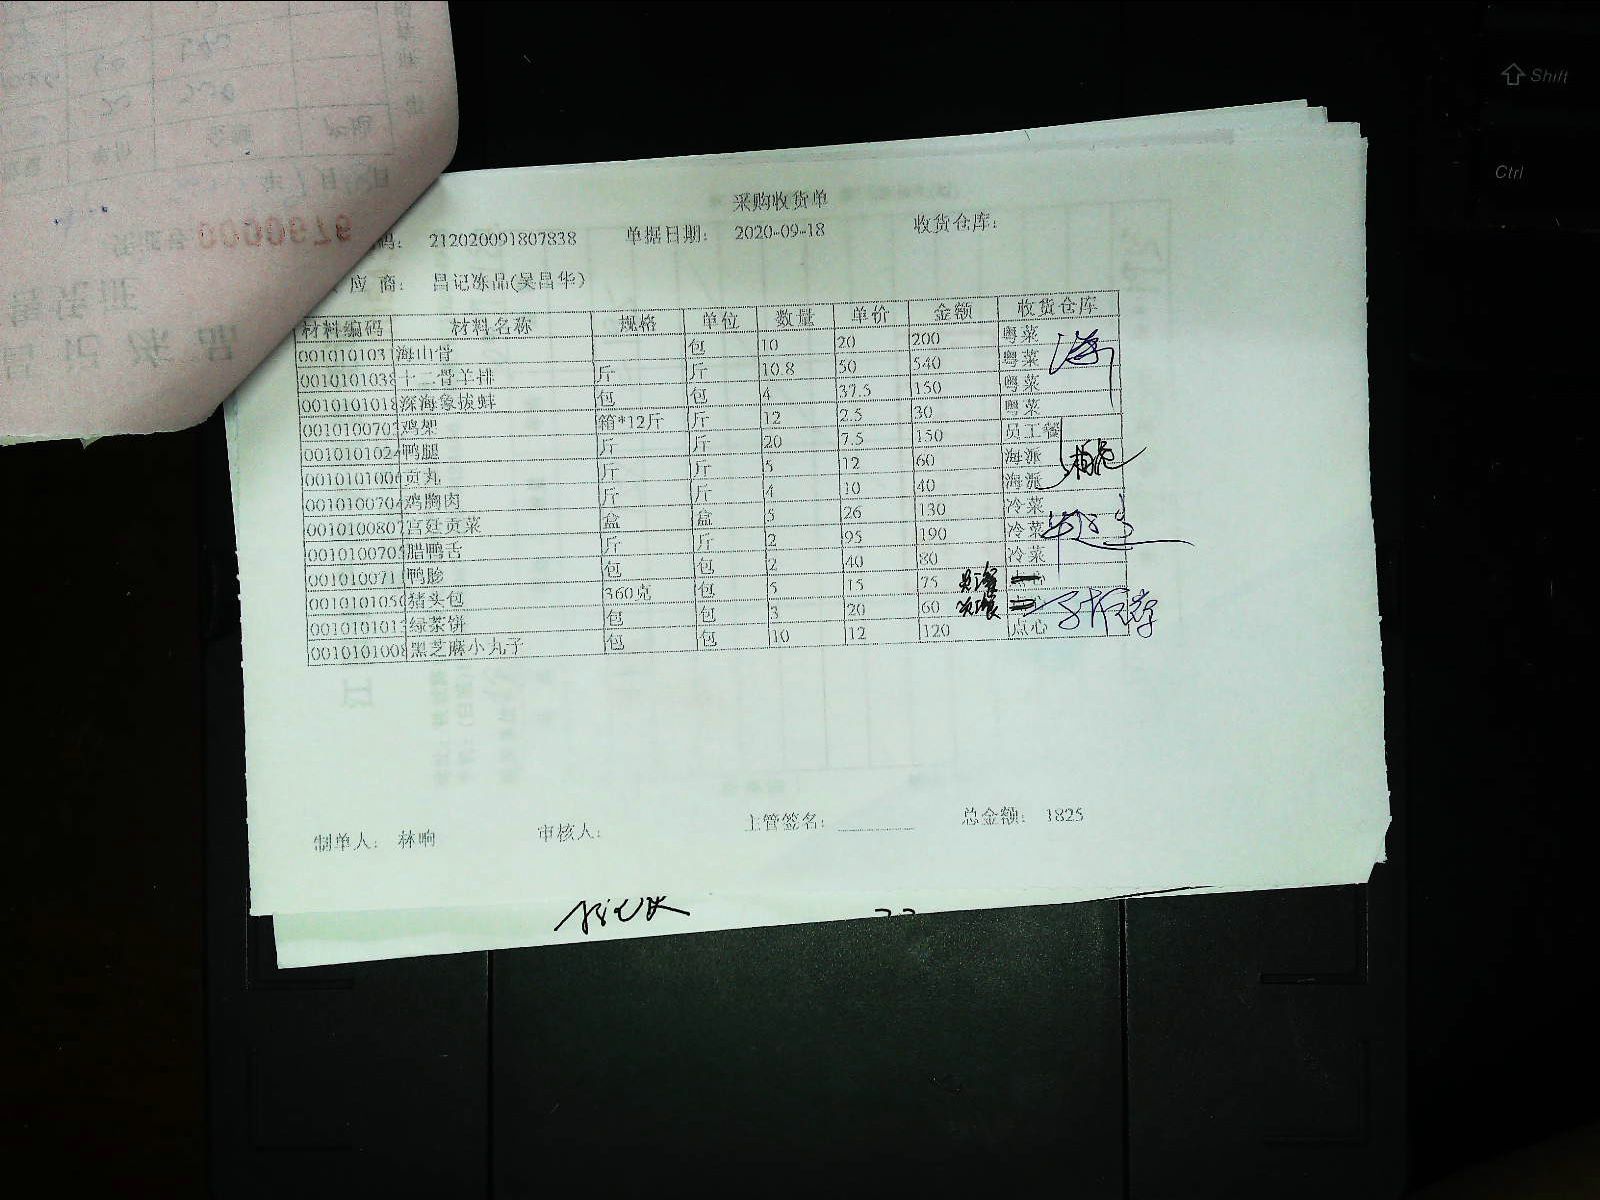 采购收货单
码: 212020091807838 单据日期: 2020-09-18 收货仓库:
应 商: 昌记冻品(吴昌华)
材料编码 材料名称 规格 单位 数量 单价 金额 收货仓库
001010103 海山骨 包 10 20 200 粤菜
0010101038 十二骨羊排 斤 斤 10.8 50 540 粤菜
0010101018 深海象拔蚌 包 包 4 37.5 150 粤菜
001010070 鸡架 箱*12斤 斤 12 2.5 30 粤菜
0010101024 鸭腿 斤 斤 20 7.5 150 员工餐
0010101006 贡丸 斤 斤 5 12 60 海派
0010100704 鸡胸肉 斤 斤 4 10 40 海派
001010080 宫廷贡菜 盒 盒 5 26 130 冷菜
001010070 腊鸭舌 斤 斤 2 95 190 冷菜
001010071 鸭胗 包 包 2 40 80 冷菜
001010105 猪头包 360克 包 5 15 75
001010101 绿茶饼 包 包 3 20 60
0010101008 黑芝麻小丸子 包 包 10 12 120 点心
制单人: 林响 审核人: 主管签名: 总金额: 1825
Shift
Ctrl